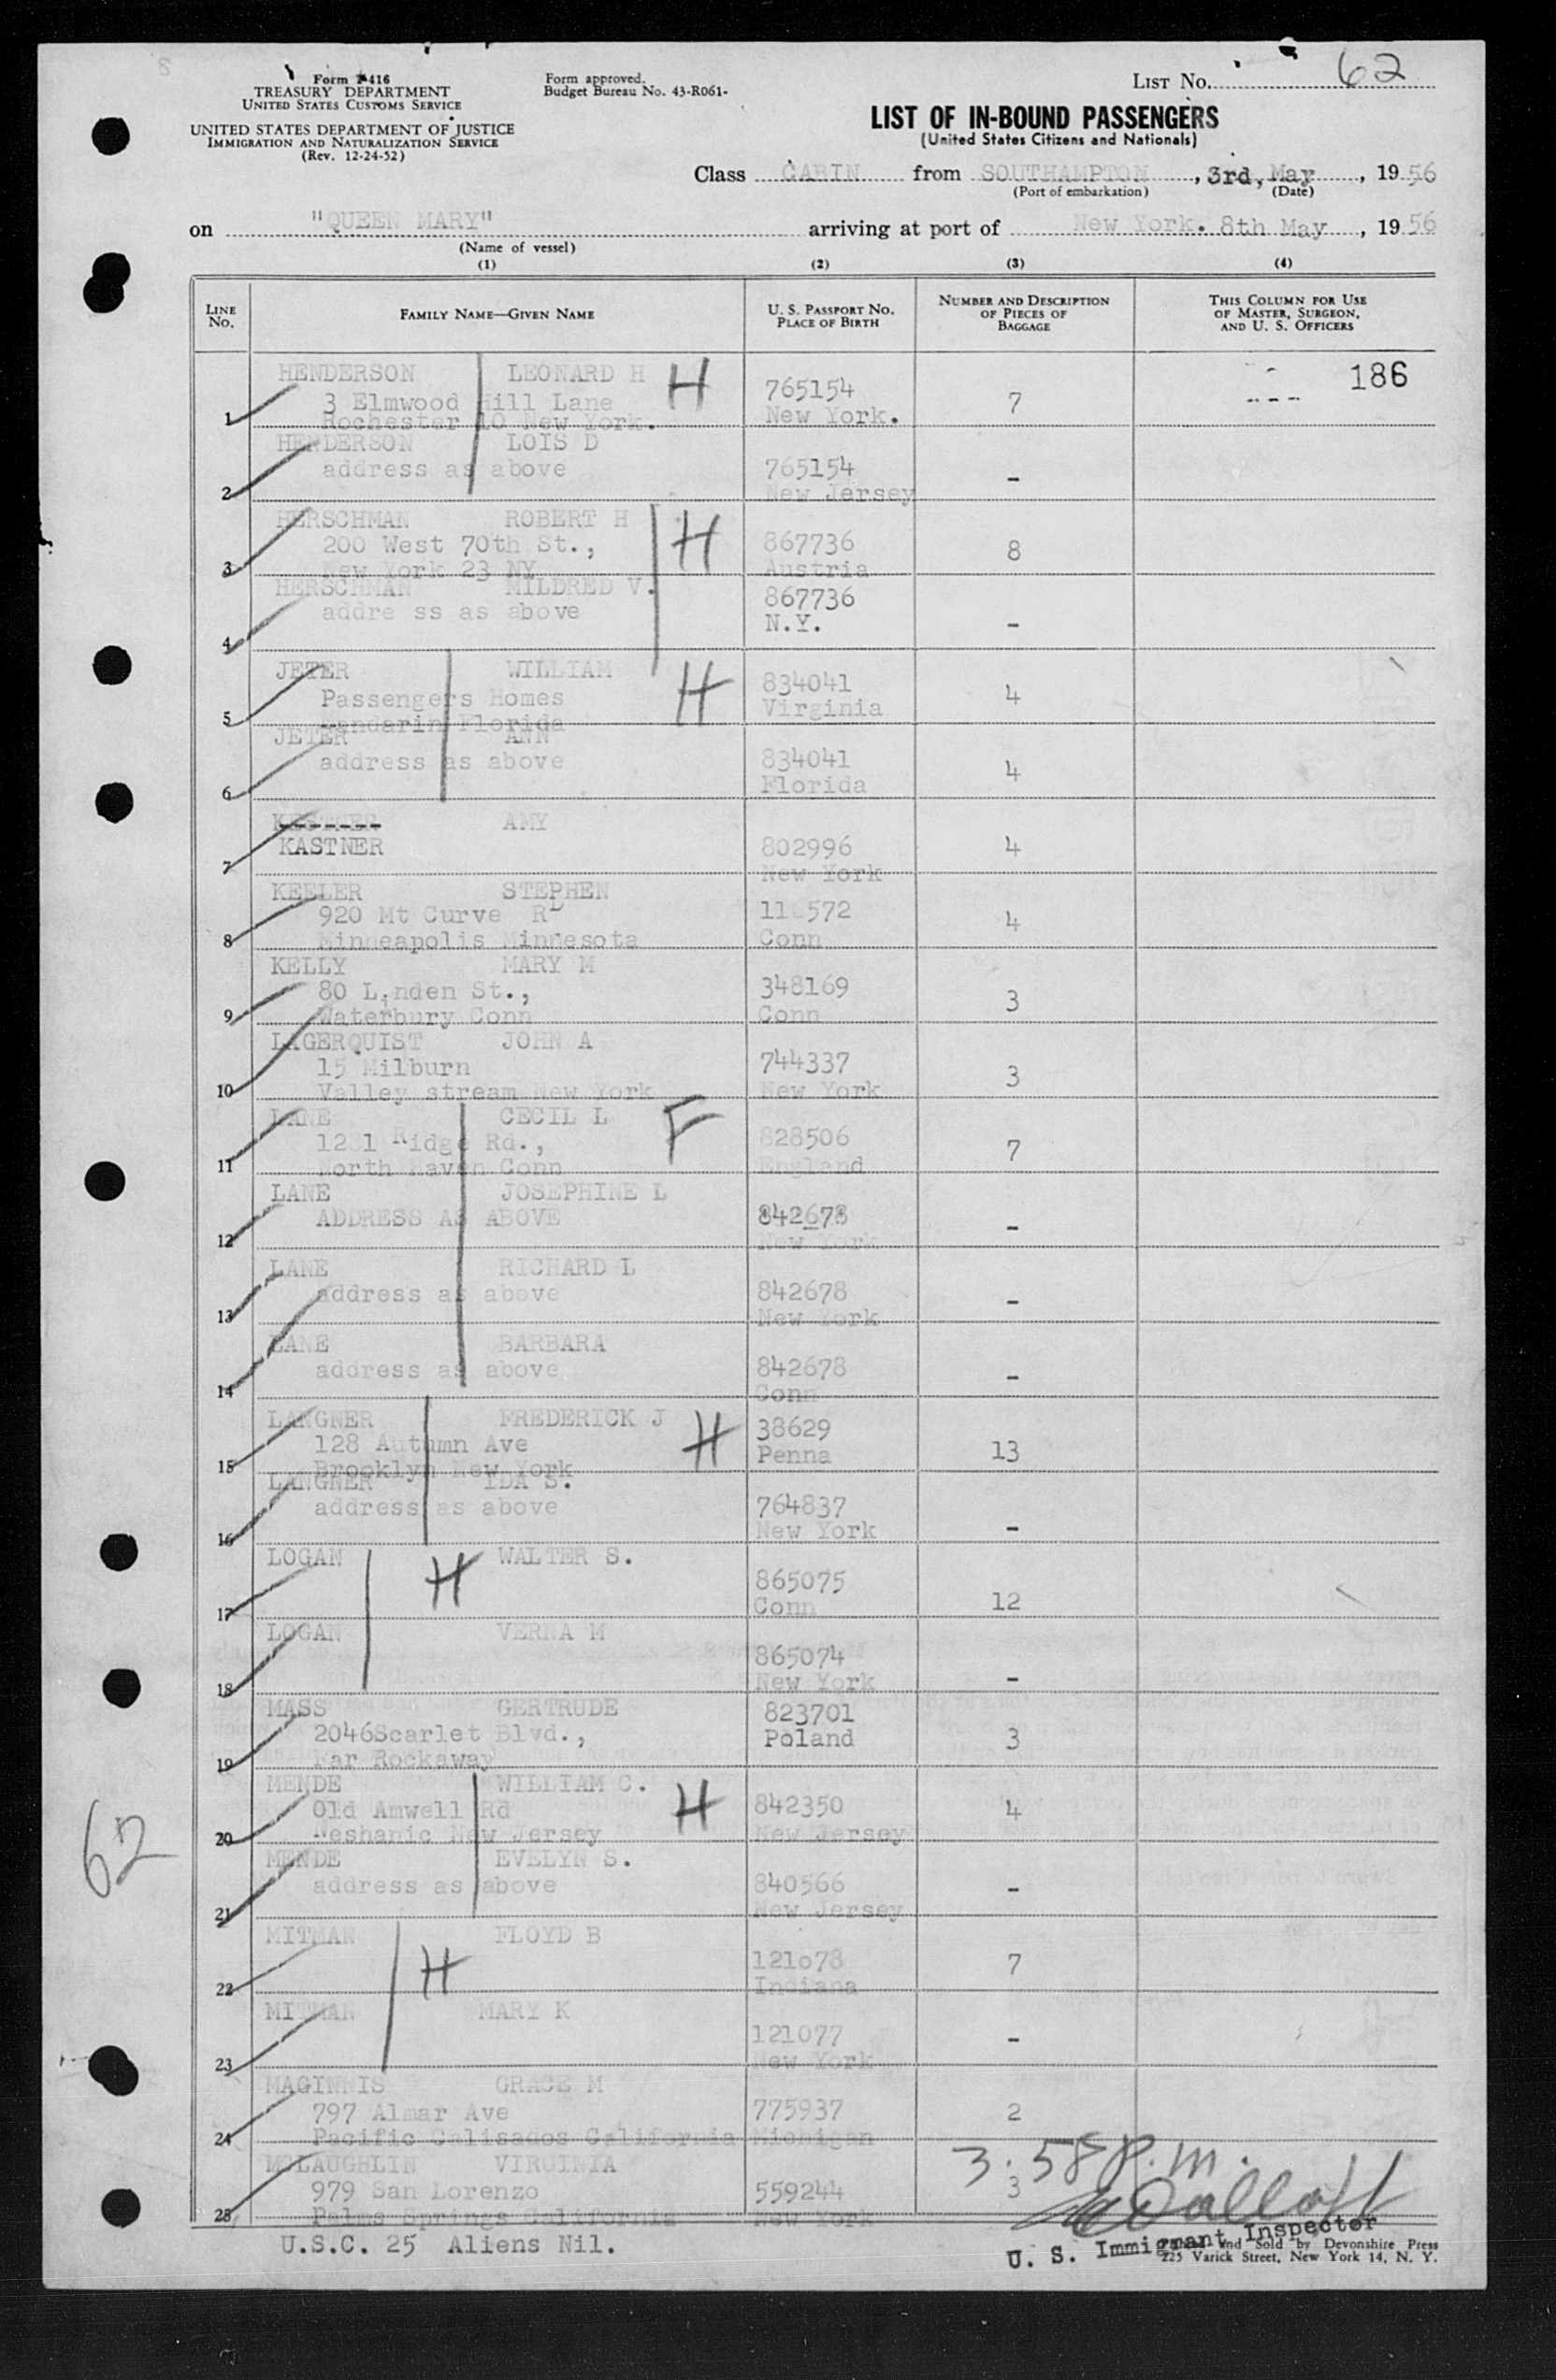 Form I-416
TREASURY DEPARTMENT
UNITED STATES CUSTOMS SERVICE
UNITED STATES DEPARTMENT OF JUSTICE
IMMIGRATION AND NATURALIZATION SERVICE
(Rev. 12-24-52)
Form approved.
Budget Bureau No. 43-R061-
LIST No. 62
LIST OF IN-BOUND PASSENGERS
(United States Citizens and Nationals)
Class CABIN from SOUTHAMPTON, 3rd, May, 1956
(Port of embarkation) (Date)
on "QUEEN MARY" arriving at port of New York. 8th May, 1956
(Name of vessel)
(1) (2) (3) (4)
LINE No. FAMILY NAME—GIVEN NAME U. S. PASSPORT NO. PLACE OF BIRTH NUMBER AND DESCRIPTION OF PIECES OF BAGGAGE THIS COLUMN FOR USE OF MASTER, SURGEON, AND U. S. OFFICERS
HENDERSON LEONARD H H 765154 186
3 Elmwood Hill Lane 7
1 Rochester 10 New York. New York.
HENDERSON LOIS D
address as above 765154 -
2 New Jersey
HERSCHMAN ROBERT H H
200 West 70th St., 867736 8
3 New York 23 NY Austria
HERSCHMAN MILDRED V. 867736
address as above N.Y. -
4
JETER WILLIAM H 834041
Passengers Homes Virginia 4
5 Mandarin Florida
JETER ANN
address as above 834041 4
6 Florida
AMY
KASTNER 802996 4
7 New York
KEELER STEPHEN
920 Mt Curve Rd 4
8 Minneapolis Minnesota Conn
KELLY MARY M
80 Linden St., 348169 3
9 Waterbury Conn Conn
LAGERQUIST JOHN A
15 Milburn 744337 3
10 Valley stream New York New York
LANE CECIL L F
Ridge Rd., 828506 7
11 North Haven Conn England
LANE JOSEPHINE L
ADDRESS AS ABOVE 842678 -
12 New York
LANE RICHARD L
address as above 842678 -
13 New York
LANE BARBARA
address as above 842678 -
14 Conn
LANGNER FREDERICK J H 38629
128 Autumn Ave Penna 13
15 Brooklyn New York
LANGNER IDA S.
address as above 764837 -
16 New York
LOGAN H WALTER S.
865075 12
17 Conn
LOGAN VERNA M
865074 -
18 New York
MASS GERTRUDE 823701
2046Scarlet Blvd., Poland 3
19 Far Rockaway
MENDE WILLIAM C. H
Old Amwell Rd 842350 4
20 Neshanic New Jersey New Jersey
MENDE EVELYN S.
address as above 840566 -
21 New Jersey
MITMAN FLOYD B
H 121078 7
22 Indiana
MITMAN MARY K
121077 -
23 New York
MAGINNIS GRACE M
797 Almar Ave 775937 2
24 Pacific Calisados California Michigan
McLAUGHLIN VIRGINIA 3.58 P.m.
979 San Lorenzo 559244 3
25 Palms Springs California New York
U.S.C. 25 Aliens Nil.
U. S. Immigrant Inspector
and Sold by Devonshire Press
225 Varick Street, New York 14, N. Y.
62